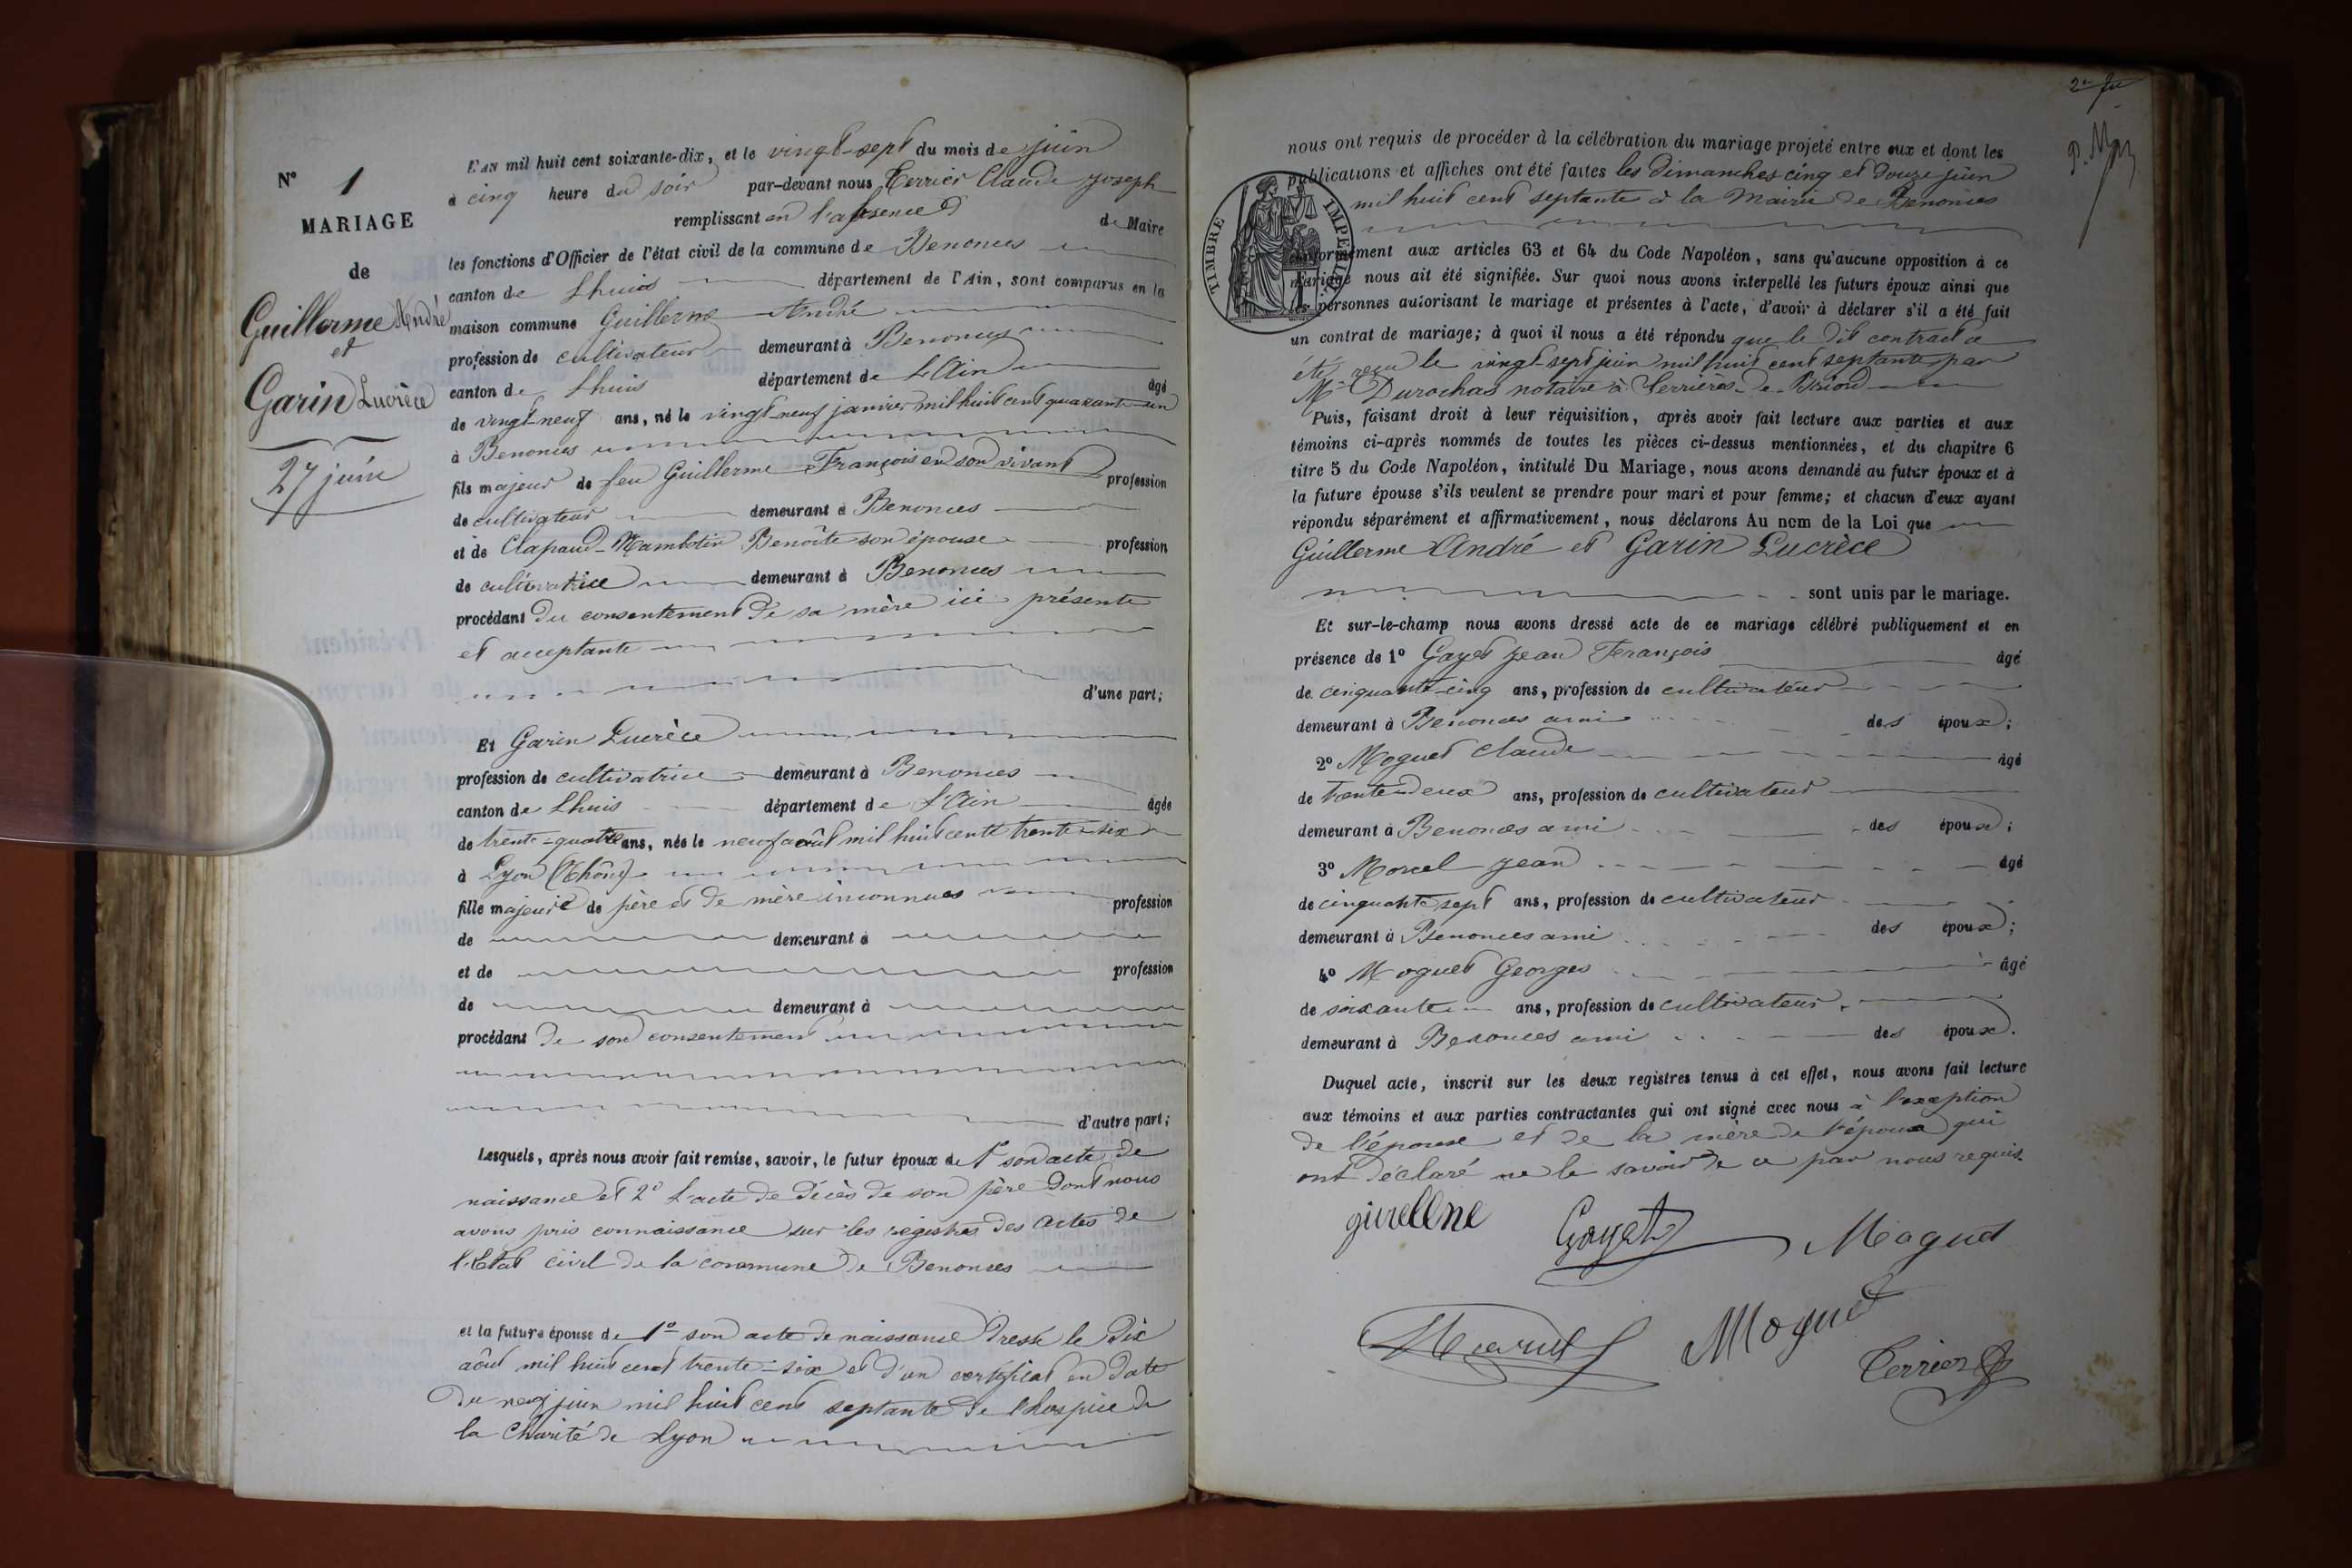 N° 1
MARIAGE
de
Guillerme André
et
Garin Lucrèce
27 juin
L'AN mil huit cent soixante-dix, et le vingt-sept du mois de juin
à cinq heure du soir par-devant nous Terrier Claude Joseph
remplissant en l'absence d de Maire
les fonctions d'Officier de l'état civil de la commune de Benonces
canton de Lhuis département de l'Ain, sont comparus en la
maison commune Guillerme André
profession de cultivateur demeurant à Benonces
canton de Lhuis département de L'Ain âgé
de vingt-neuf ans, né le vingt-neuf janvier mil huit cent quarante-un
à Benonces
fils majeur de feu Guillerme François en son vivant profession
de cultivateur demeurant à Benonces
et de Clapaud-Mambotin Benoîte son épouse profession
de cultivatrice demeurant à Benonces
procédant du consentement de sa mère ici présente
et acceptante
d'une part;
Et Garin Lucrèce
profession de cultivatrice demeurant à Benonces
canton de Lhuis département de L'Ain âgée
de trente-quatre ans, née le neuf août mil huit cent trente-six
à Lyon (Rhône)
fille majeure de père et de mère inconnues profession
de demeurant à
et de profession
de demeurant à
procédant de son consentement
d'autre part;
Lesquels, après nous avoir fait remise, savoir, le futur époux de 1° son acte de
naissance et 2° L'acte de décès de son père dont nous
avons pris connaissance sur les registres des actes de
l'Etat civil de la commune de Benonces
et la future épouse de 1° son acte de naissance dressé le dix
août mil huit cent trente-six et d'un certificat en date
du neuf juin mil huit cent septante de l'hospice de
la Charité de Lyon
nous ont requis de procéder à la célébration du mariage projeté entre eux et dont les
publications et affiches ont été faites les dimanches cinq et douze juin
mil huit cent septante à la Mairie de Benonces
TIMBRE IMPERIAL
conformément aux articles 63 et 64 du Code Napoléon, sans qu'aucune opposition à ce
mariage nous ait été signifiée. Sur quoi nous avons interpellé les futurs époux ainsi que
les personnes autorisant le mariage et présentes à l'acte, d'avoir à déclarer s'il a été fait
un contrat de mariage; à quoi il nous a été répondu que le dit contrat a
été reçu le vingt-sept juin mil huit cent septante par
Me Durochas notaire à Serrières-de-Briord
Puis, faisant droit à leur réquisition, après avoir fait lecture aux parties et aux
témoins ci-après nommés de toutes les pièces ci-dessus mentionnées, et du chapitre 6
titre 5 du Code Napoléon, intitulé Du Mariage, nous avons demandé au futur époux et à
la future épouse s'ils veulent se prendre pour mari et pour femme; et chacun d'eux ayant
répondu séparément et affirmativement, nous déclarons Au nom de la Loi que
Guillerme André et Garin Lucrèce
sont unis par le mariage.
Et sur-le-champ nous avons dressé acte de ce mariage célébré publiquement et en
présence de 1° Gayet Jean François âgé
de cinquante-cinq ans, profession de cultivateur
demeurant à Benonces ami des époux;
2° Moguet Claude âgé
de trente-deux ans, profession de cultivateur
demeurant à Benonces ami des époux;
3° Morel Jean âgé
de cinquante sept ans, profession de cultivateur
demeurant à Benonces ami des époux;
4° Moguet Georges âgé
de soixante ans, profession de cultivateur
demeurant à Benonces ami des époux.
Duquel acte, inscrit sur les deux registres tenus à cet effet, nous avons fait lecture
aux témoins et aux parties contractantes qui ont signé avec nous à l'exception
de l'épouse et de la mère de l'époux qui
ont déclaré ne le savoir de ce par nous requis.
giurellne Gayet Moguet
Moguet
Terrier